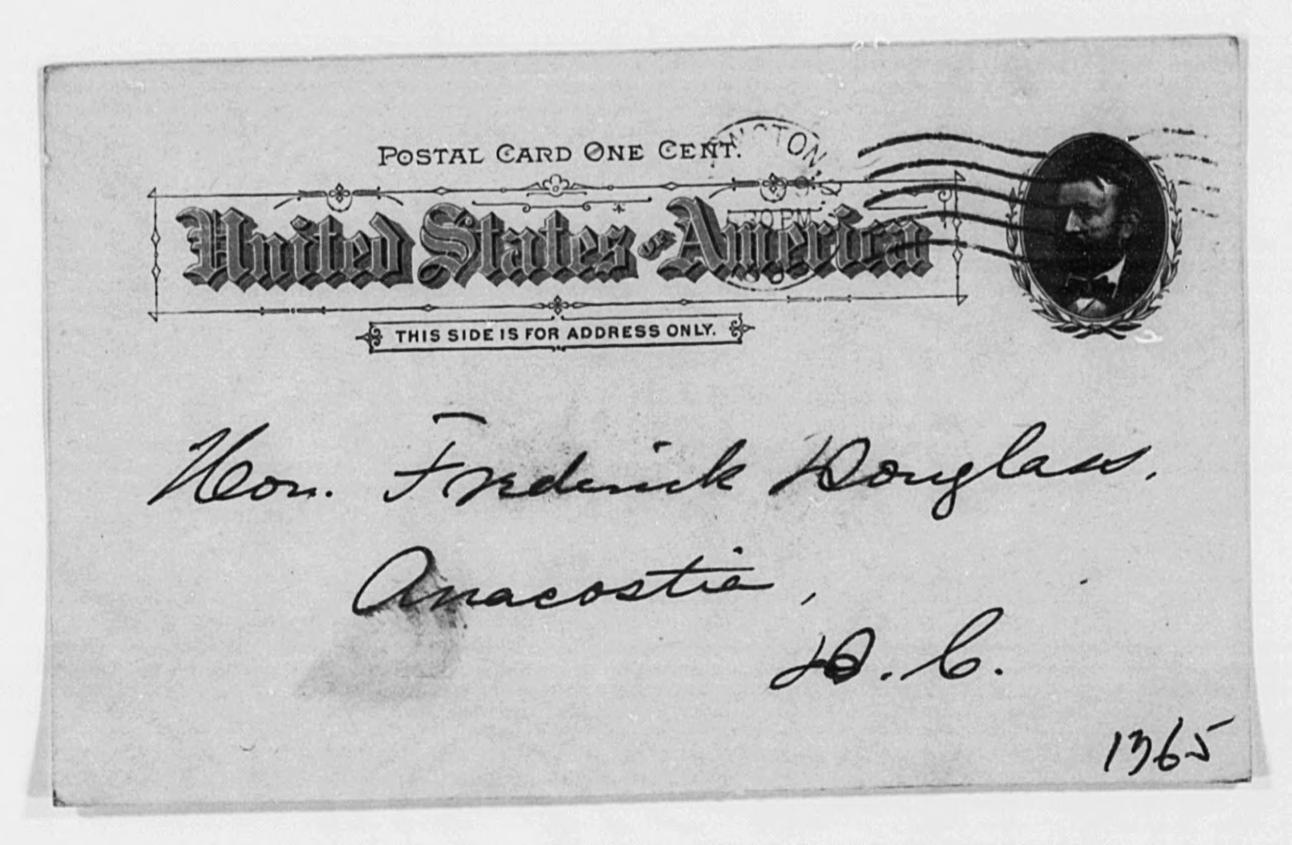 POSTAL CARD ONE CENT.
United States of America
THIS SIDE IS FOR ADDRESS ONLY.
Hon. Frederick Douglass,
Anacostia,
D.C.
1365